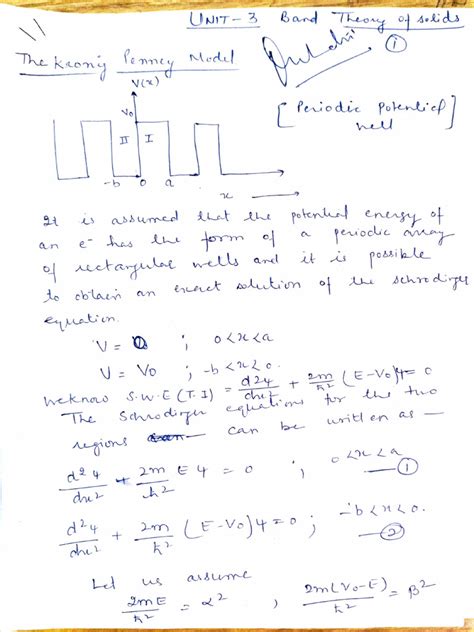 UNIT-3 Band Theory of solids
①
The Kronig Penney Model
V(x)
[Periodic Potential
well]
V₀
II I
-b 0 a
x
It is assumed that the potential energy of
an e⁻ has the form of a periodic array
of rectangular wells and it is possible
to obtain an exact solution of the schrodinger
equation.
V = 0 ; 0<x<a
V = V₀ ; -b<x<0.
we know S.W.E (T.I) = d²ψ/dx² + 2m/ħ² (E-V₀)ψ = 0
The Schrodinger equations for the two
regions can be written as —
d²ψ/dx² + 2m/ħ² Eψ = 0 ; 0<x<a —①
d²ψ/dx² + 2m/ħ² (E-V₀)ψ=0 ; -b<x<0. —②
Let us assume
2mE/ħ² = α² , 2m(V₀-E)/ħ² = β²